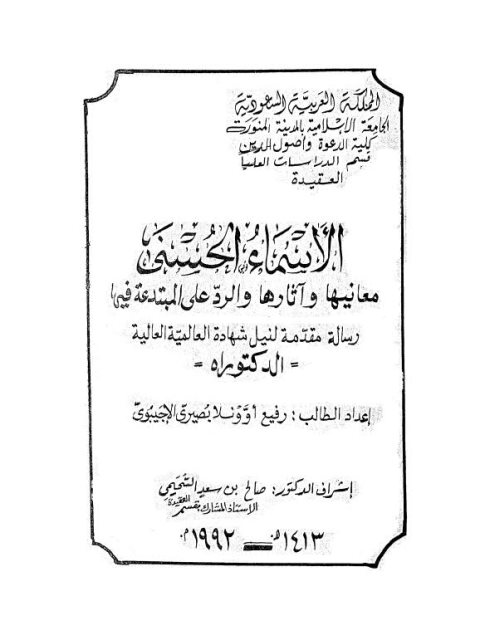 المملكة العربية السعودية
الجامعة الإسلامية بالمدينة المنورة
كلية الدعوة وأصول الدين
قسم الدراسات العليا
العقيدة
الأسماء الحسنى
معانيها وآثارها والرد على المبتدعة فيها
رسالة مقدمة لنيل شهادة العالمية العالية
= الدكتوراه =
إعداد الطالب : رفيع أوونلا بصيري الإجيبوي
إشراف الدكتور : صالح بن سعد السحيمي
الأستاذ المشارك بقسم العقيدة
١٤١٣هـ — ١٩٩٢م